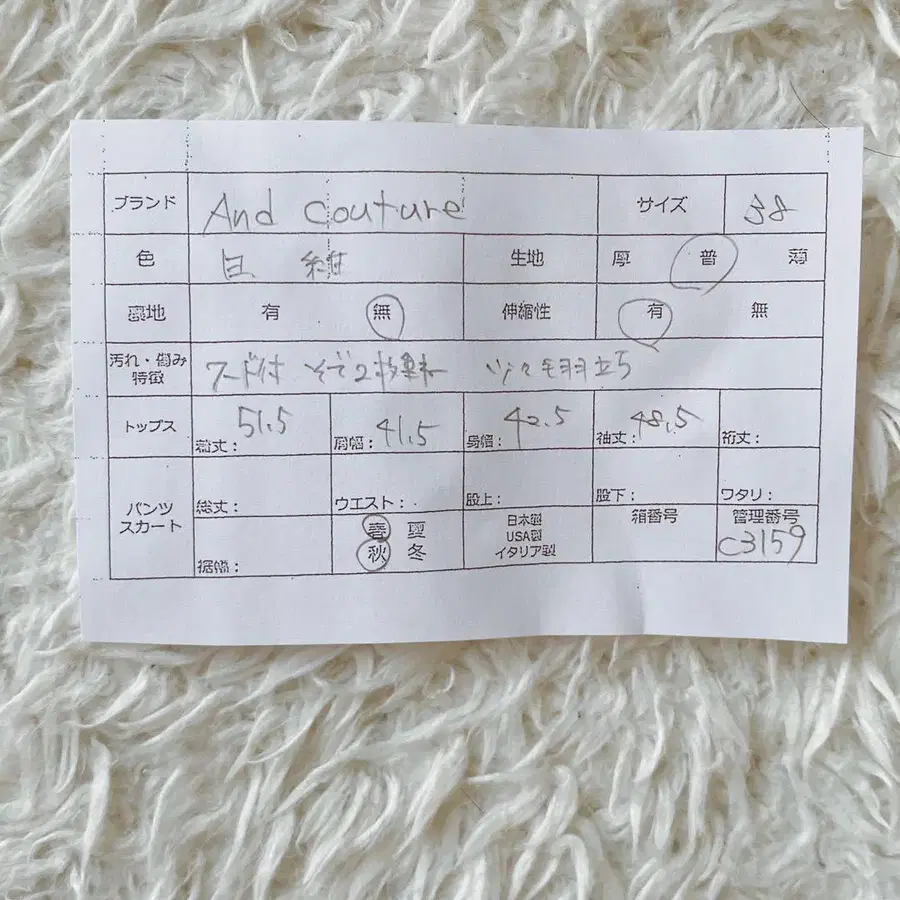 ブランド And couture サイズ 38
色 白 紺 生地 厚 普 薄
裏地 有 無 伸縮性 有 無
汚れ・傷み
特徴 フード付 そで2枚重ね 少々毛羽立ち
トップス 総丈: 51.5 肩幅: 41.5 身幅: 42.5 袖丈: 48.5 裄丈:
パンツ
スカート 総丈: ウエスト: 股上: 股下: ワタリ:
裾幅: 春 夏
秋 冬
日本製
USA製
イタリア製
箱番号 管理番号
C3159